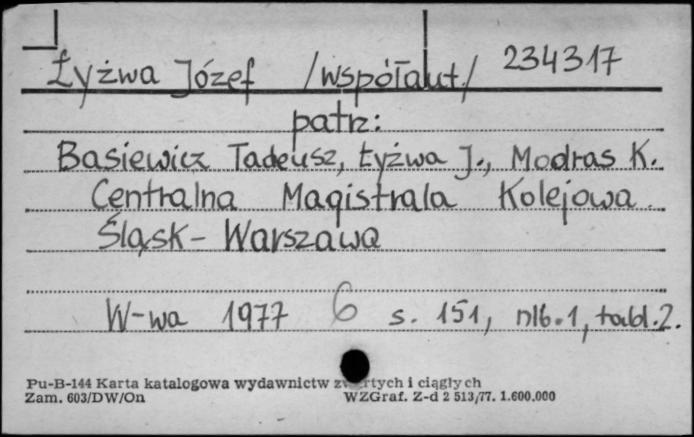 Łyżwa Józef /współaut./ 234317
patrz:
Basiewicz Tadeusz, Łyżwa J., Modras K.
Centralna Magistrala Kolejowa
Śląsk - Warszawa
W-wa 1977 6 s. 151, nlb. 1, tabl. 2.
Pu-B-144 Karta katalogowa wydawnictw zwartych i ciągłych
Zam. 603/DW/On WZGraf. Z-d 2 513/77. 1.600.000